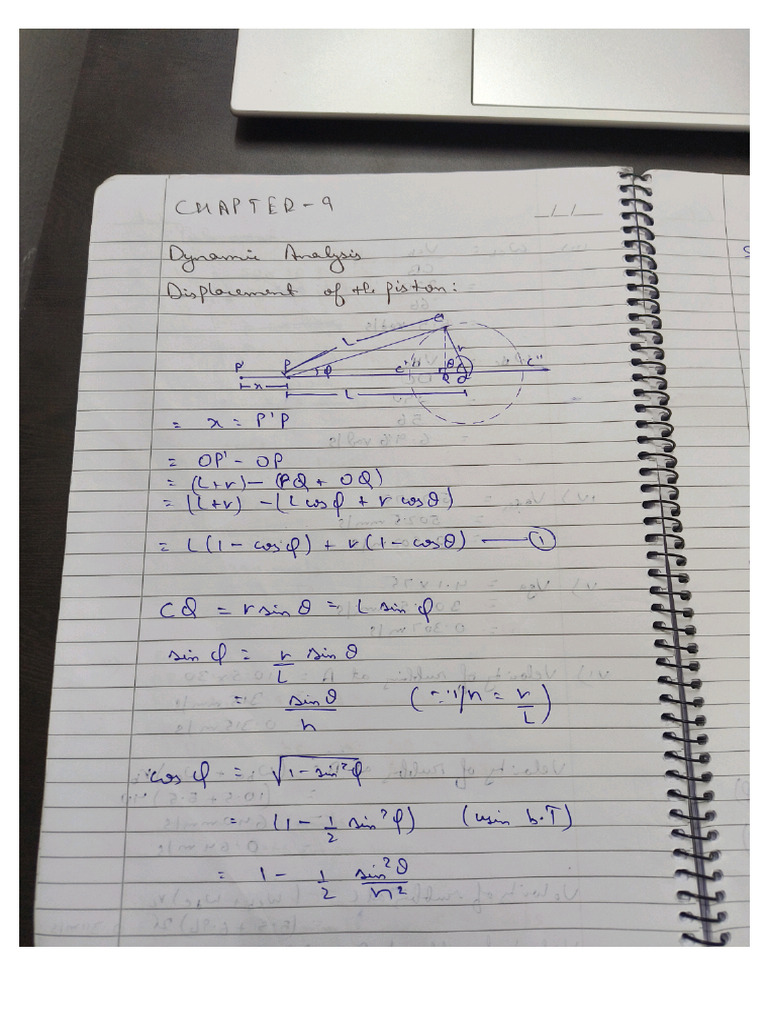 CHAPTER-9
_/_/_
Dynamic Analysis
Displacement of the piston:
C
L
r
P' P φ C' θ C''
Q O
x
L
= x = P'P
= OP' - OP
= (L+r) - (PQ + OQ)
= (L+r) - (L cosφ + r cosθ)
= L(1 - cosφ) + r(1 - cosθ) —— ①
CQ = r sinθ = L sinφ
sinφ = r/L sinθ
= sinθ/n (∵ 1/n = r/L)
cosφ = √(1-sin²φ)
= (1 - 1/2 sin²φ) (usin b.T)
= 1 - 1/2 sin²θ/n²